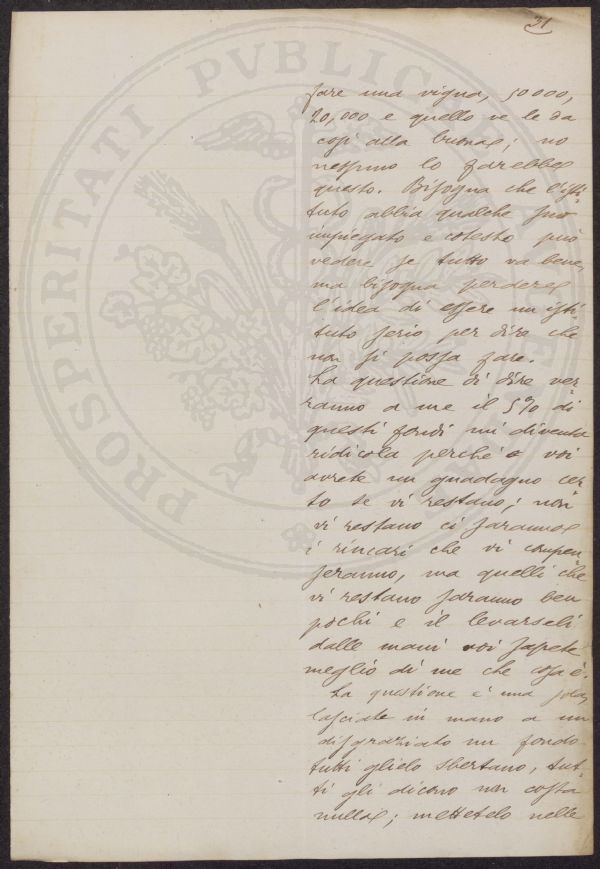 31
fare una vigna, 50000,
20,000 e quello ve le da
così alla buona; no
nessuno lo farebbe
questo. Bisogna che l'isti-
tuto abbia qualche suo
impiegato e cotesto può
vedere se tutto va bene,
ma bisogna perdere
l'idea di essere un isti-
tuto serio per dire che
non si possa fare.
La questione di dire ver-
ranno a me il 5% di
questi fondi mi diventa
ridicola perchè o voi
avrete un guadagno cer-
to se vi restano; non
vi restano ci saranno
i rincari che vi compen-
seranno, ma quelli che
vi restano saranno ben
pochi e il levarseli
dalle mani voi sapete
meglio di me che cosa è.
La questione è una sola,
lasciate in mano a un
disgraziato un fondo
tutti glielo sbertano, tut-
ti gli dicono non costa
nulla; mettetelo nelle
PROSPERITATI PVBLICAE